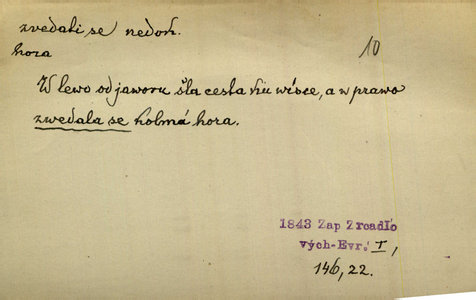 zvedati se nedok.
hora
10
W lewo od jaworu šla cesta ku wísce, a w prawo
zwedala se kolmá hora.
1843 Zap Zrcadlo
vých-Evr. I,
146, 22.